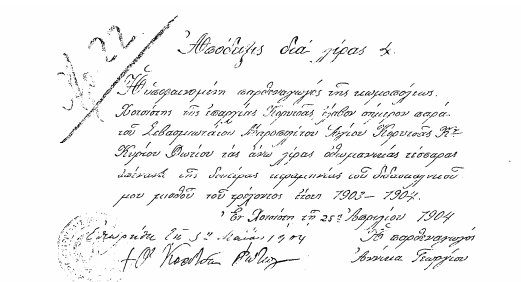 Ἀρ. 22
Ἀπόδειξις διά λίρας 4.
Ἡ ὑποφαινομένη παρθεναγωγός τῆς κωμοπόλεως
Χοτσίστης τῆς ἐπαρχίας Κορυτσᾶς, ἔλαβον σήμερον παρά
τοῦ Σεβασμιωτάτου Μητροπολίτου Ἁγίου Κορυτσᾶς Κου
Κυρίου Φωτίου τάς ἄνω λίρας ὀθωμανικάς τέσσαρας
ἀπέναντι τῆς δευτέρας τετραμηνίας τοῦ διδασκαλικοῦ
μου μισθοῦ τοῦ τρέχοντος ἔτους 1903 - 1904.
Ἐν Χοτσίστῃ τῇ 25ῃ Ἀπριλίου 1904
Ἐθεωρήθη τῇ 5ῃ Μαΐου 1904 Ἡ παρθεναγωγός
† Ὁ Κορυτσᾶς Φώτιος Ἀννίκα Γεωργίου